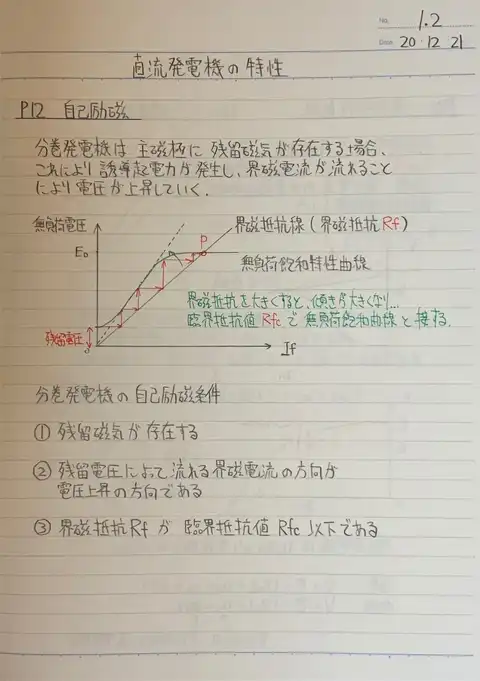 No. 1.2
Date 20・12・21
直流発電機の特性
P12 自己励磁
分巻発電機は 主磁極に 残留磁気が存在する場合、
これにより 誘導起電力が発生し、界磁電流が流れること
により 電圧が上昇していく.
無負荷電圧
P
界磁抵抗線 (界磁抵抗Rf)
E₀
無負荷飽和特性曲線
界磁抵抗を大きくすると、傾きが大きくなり...
臨界抵抗値 Rfc で 無負荷飽和曲線 と 接する.
残留電圧
0
If
分巻発電機の自己励磁条件
① 残留磁気が存在する
② 残留電圧によって流れる界磁電流の方向が
電圧上昇の方向である
③ 界磁抵抗Rf が 臨界抵抗値 Rfc 以下である